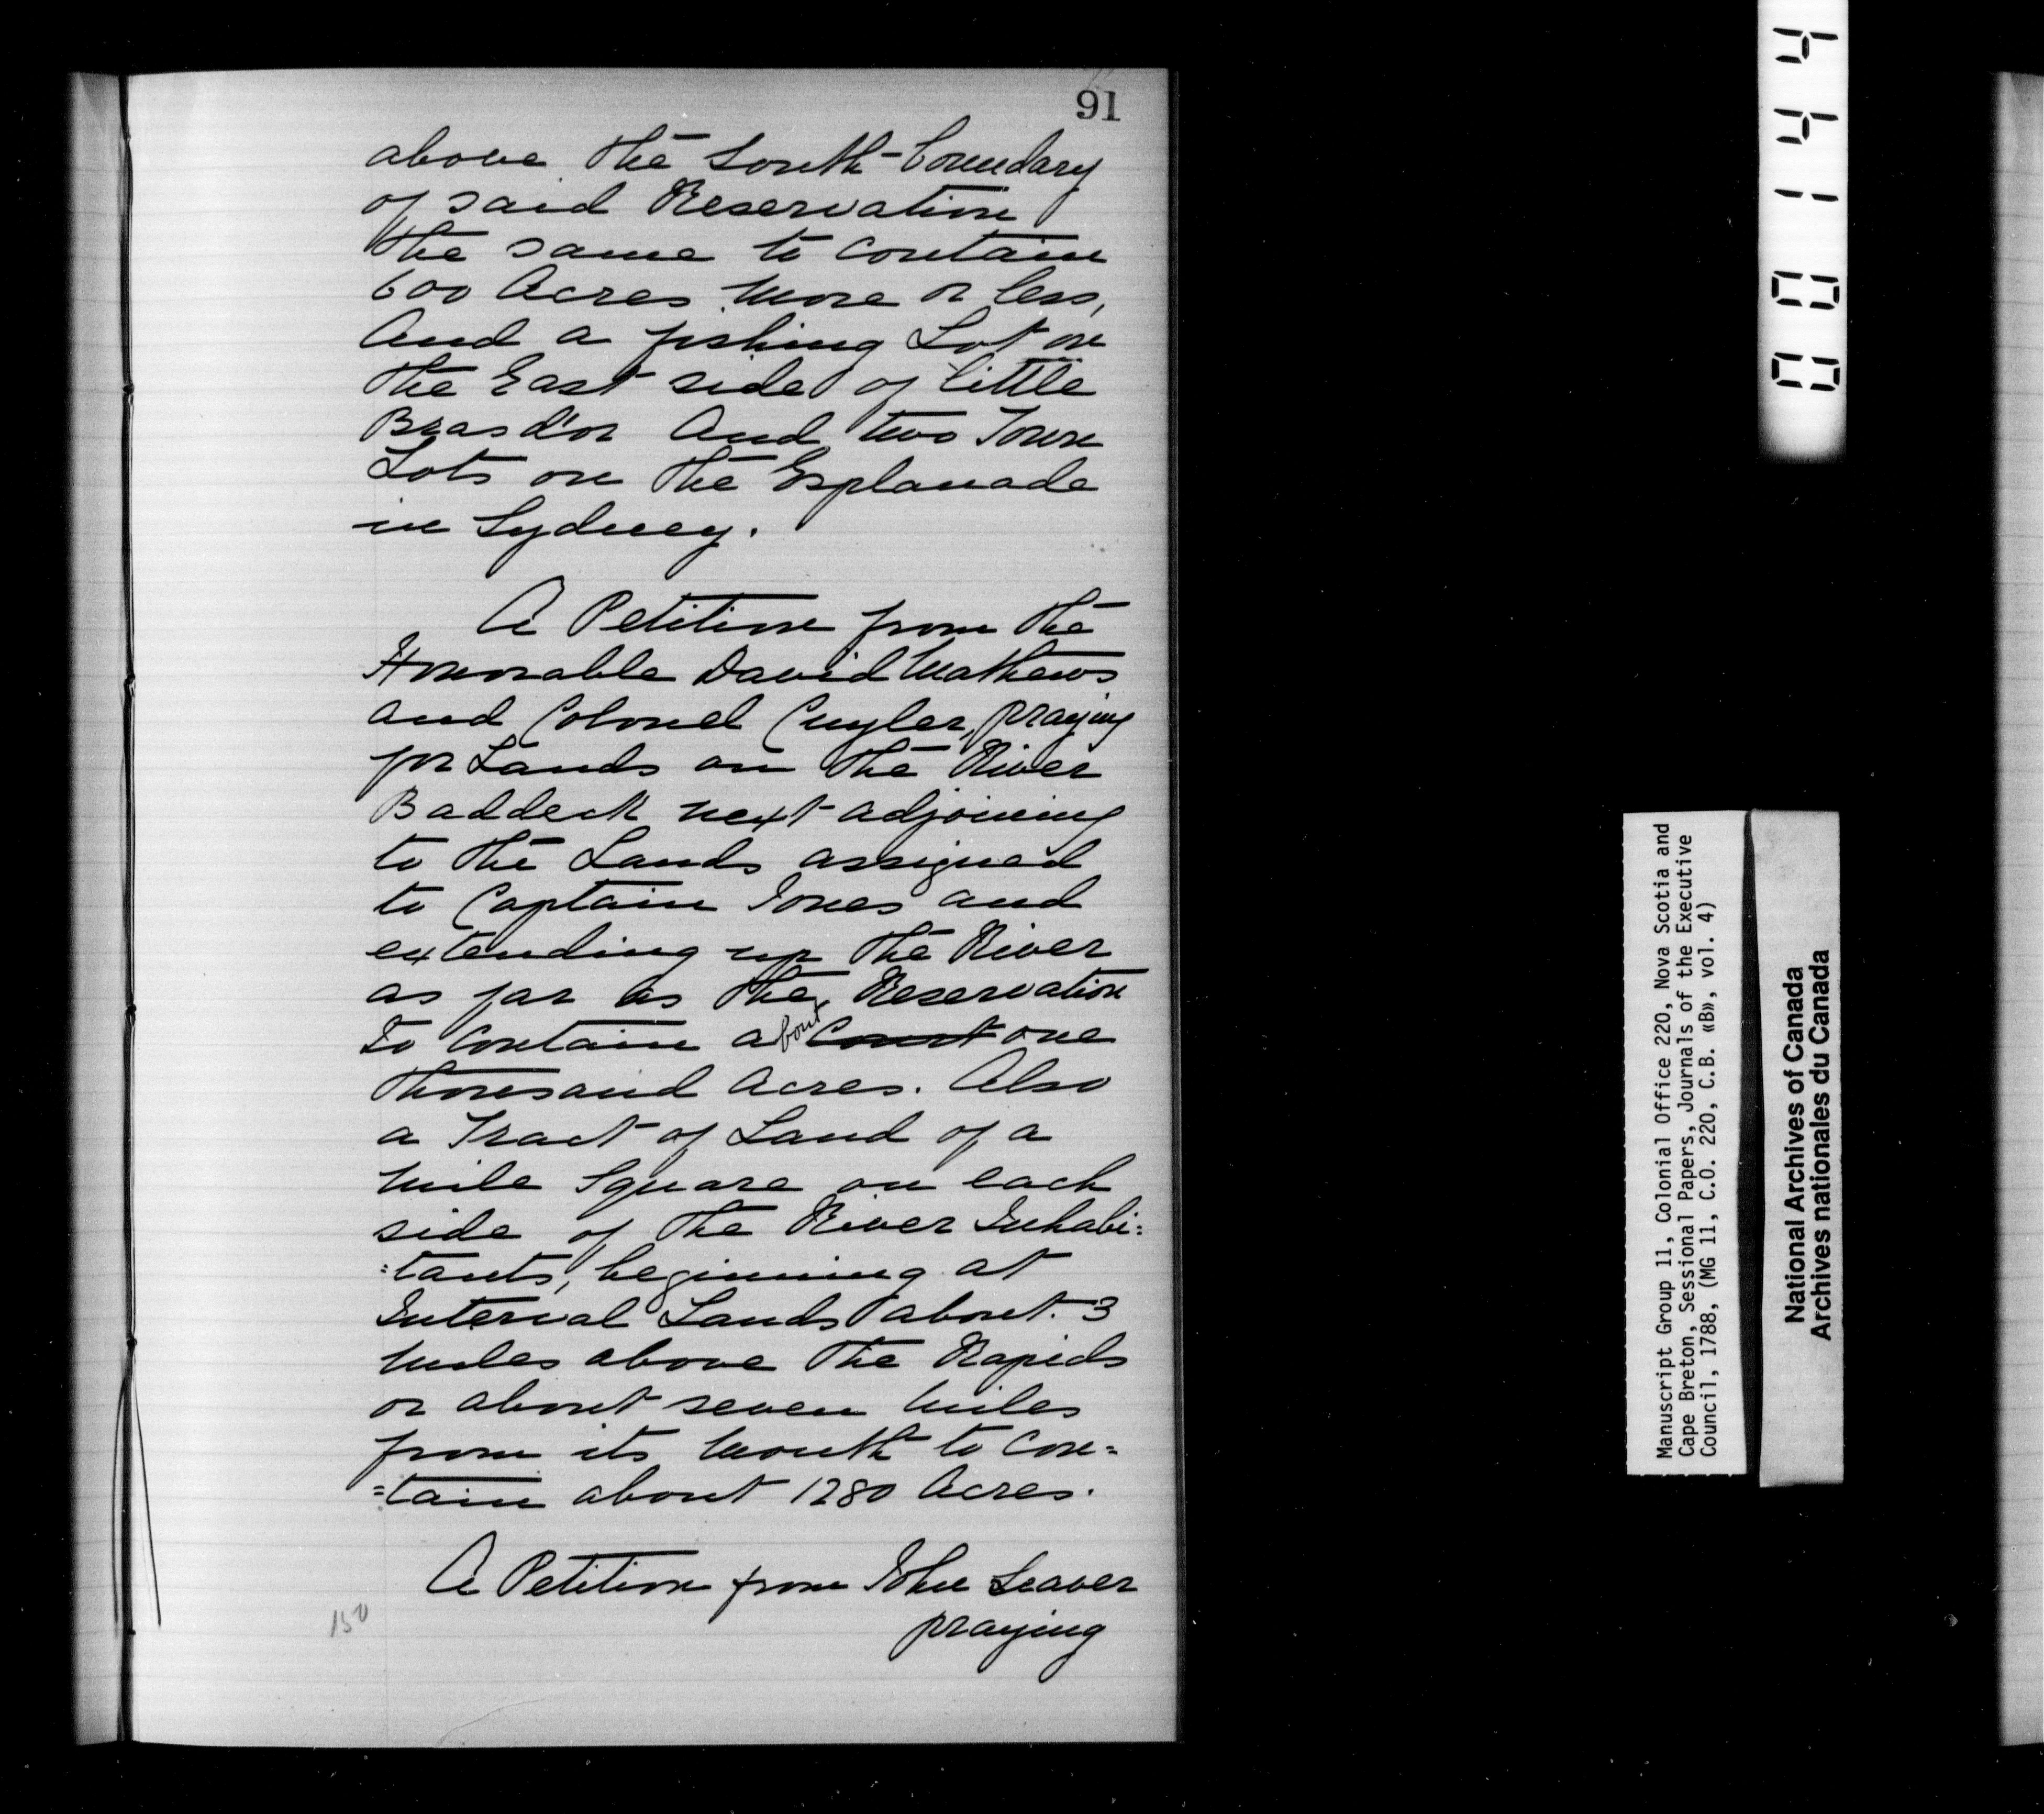 91
above the South-boundary
of said Reservation
the same to contain
600 Acres more or less,
And a fishing Lot on
the East side of little
Brasd'or And two Town
Lots on the Esplanade
in Sydney.
A Petition from the
Honorable David Mathews
and Colonel Cuyler, praying
for Lands on the River
Baddeck next adjoining
to the Lands assigned
to Captain Jones and
extending up the River
as far as the Reservation
To Contain about one
thousand Acres. Also
a Tract of Land of a
mile Square on each
side of the River Inhabi:
:tants, beginning at
Interval Lands about 3
miles above the Rapids
or about seven miles
from its mouth to con=
=tain about 1280 Acres.
A Petition from John Leaver
praying
150
00144
Manuscript Group 11, Colonial Office 220, Nova Scotia and
Cape Breton, Sessional Papers, Journals of the Executive
Council, 1788, (MG 11, C.O. 220, C.B. «B», vol. 4)
National Archives of Canada
Archives nationales du Canada